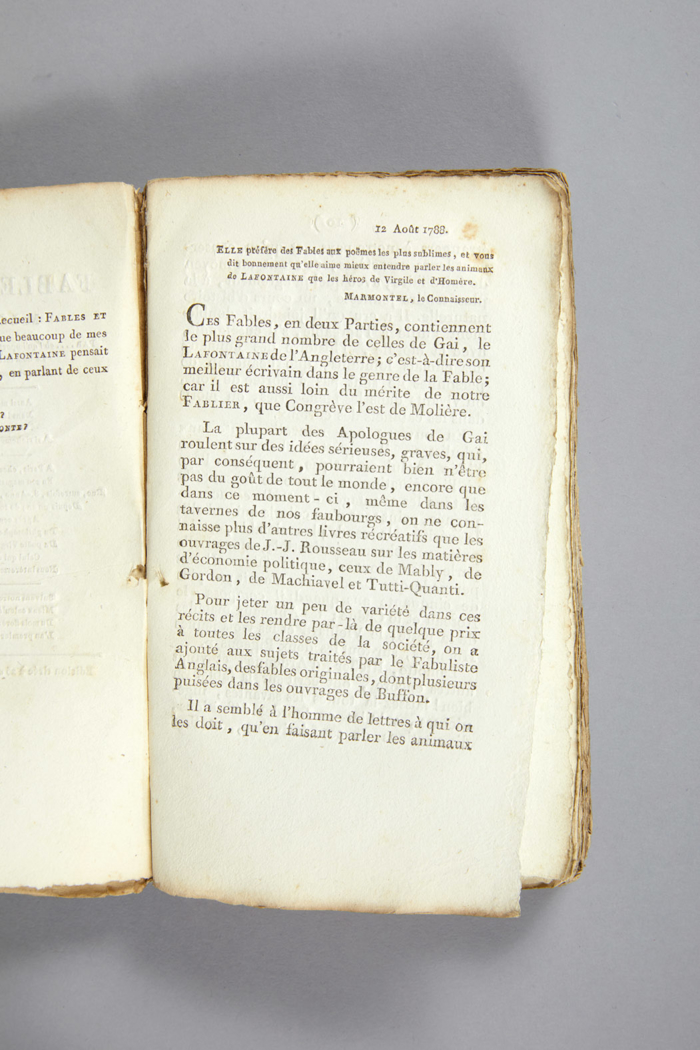 ecueil : FABLES ET
ue beaucoup de mes
LAFONTAINE pensait
, en parlant de ceux
?
ONTE?
12 Août 1788.
ELLE préfère des Fables aux poëmes les plus sublimes, et vous
dit bonnement qu'elle aime mieux entendre parler les animaux
de LAFONTAINE que les héros de Virgile et d'Homère.
MARMONTEL, le Connaisseur.
CES Fables, en deux Parties, contiennent
le plus grand nombre de celles de Gai, le
LAFONTAINE de l'Angleterre; c'est-à-dire son
meilleur écrivain dans le genre de la Fable;
car il est aussi loin du mérite de notre
FABLIER, que Congrève l'est de Molière.
La plupart des Apologues de Gai
roulent sur des idées sérieuses, graves, qui,
par conséquent, pourraient bien n'être
pas du goût de tout le monde, encore que
dans ce moment-ci, même dans les
tavernes de nos faubourgs, on ne con-
naisse plus d'autres livres récréatifs que les
ouvrages de J.-J. Rousseau sur les matières
d'économie politique, ceux de Mably, de
Gordon, de Machiavel et Tutti-Quanti.
Pour jeter un peu de variété dans ces
récits et les rendre par-là de quelque prix
à toutes les classes de la société, on a
ajouté aux sujets traités par le Fabuliste
Anglais, des fables originales, dont plusieurs
puisées dans les ouvrages de Buffon.
Il a semblé à l'homme de lettres à qui on
les doit, qu'en faisant parler les animaux